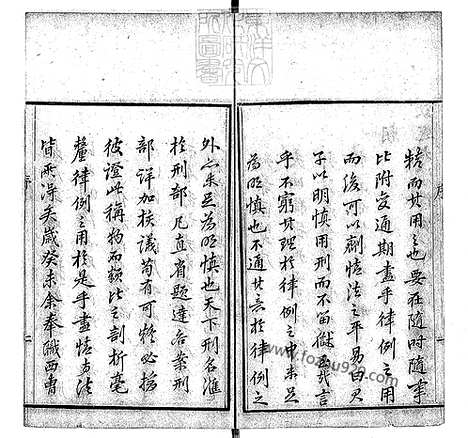 犢而其用之也要在隨時隨事
比附變通期盡乎律例之用
而後可以劑情法之平易曰君
子以明慎用刑而不留獄盖言
乎不窮其理於律例之中未足
為明慎也不通其意於律例之
外亦未足為明慎也天下刑名准
於刑部凡直省題達各案刑
部詳加核議苟有可疑必援
彼證此稱物而類比之剖析毫
釐律例之用於是乎盡情与法
皆兩得矣歲癸未余奉職西曹
序
二
www.fosou920.com